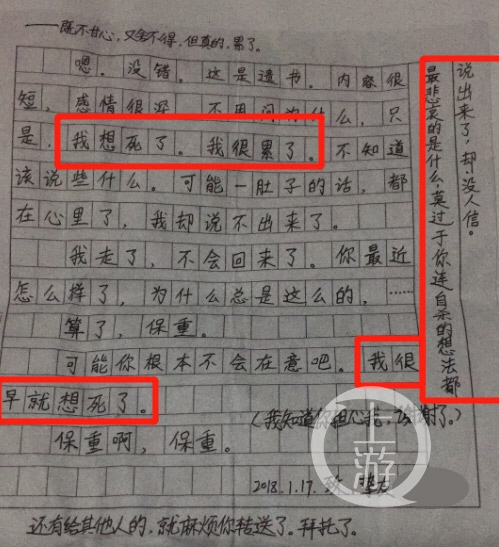 ——既不甘心，又舍不得，但真的，累了。
嗯。没错。这是遗书。内容很
短，感情很深，不要问为什么，只
是，我想死了。我很累了。不知道
该说些什么。可能一肚子的话，都
在心里了，我却说不出来了。
我走了，不会回来了。你最近
怎么样了，为什么总是这么的，……
算了，保重。
可能你根本不会在意吧。我很
早就想死了。
(我知道你担心我，谢谢了。)
保重啊，保重。
2018.1.17.
还有给其他人的，就麻烦你转送了。拜托了。
最悲哀的是什么，莫过于你连自杀的想法都
说出来了，却没人信。
上游